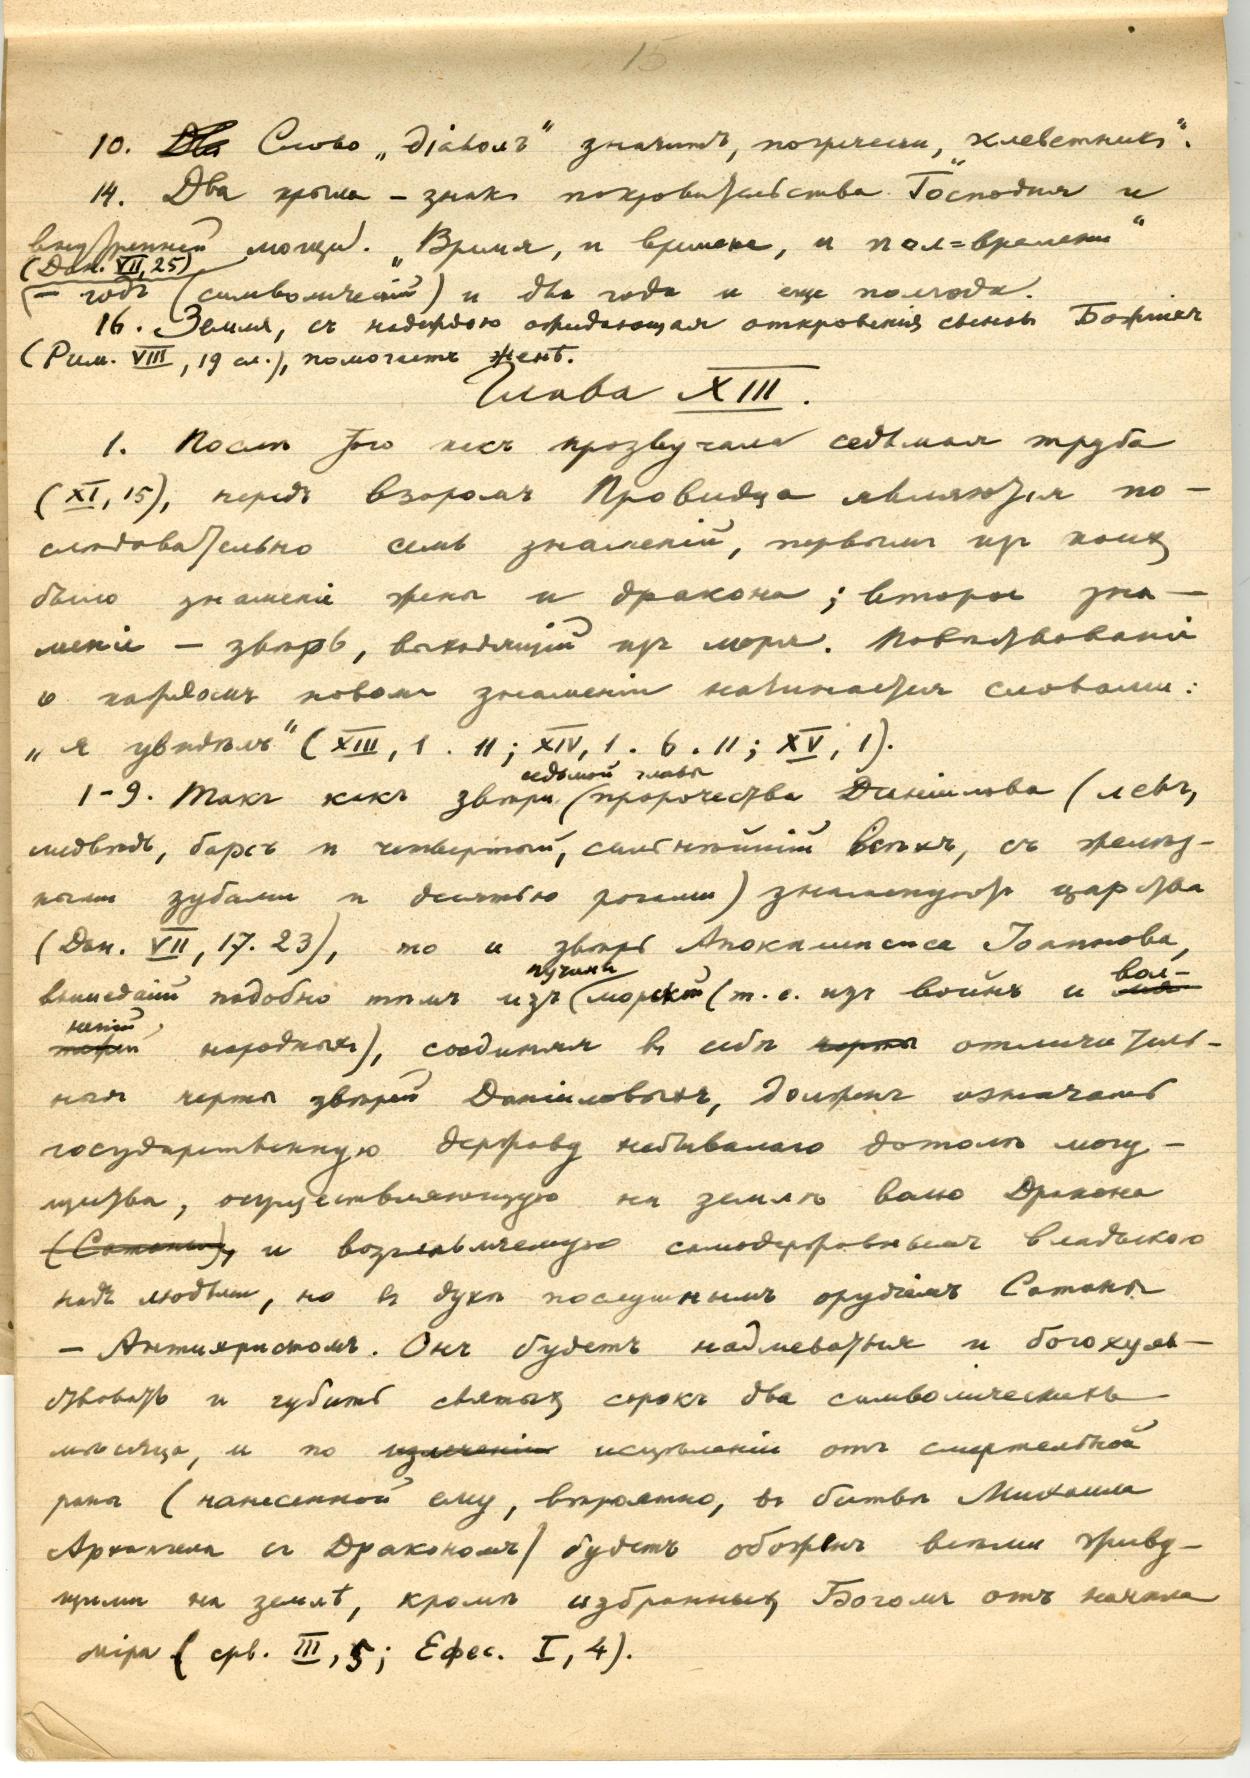 15
10. Два Слово „діаволъ“ значитъ, погречески, „клеветникъ“.
14. Два крыла – знакъ покровительства Господня и
внутренней мощи. „Время, и времена, и пол=времени“
(Дан. VII, 25)
– годъ (символическій) и два года и еще полгода.
16. Земля, съ надеждою ожидающая откровенія сыновъ Божіихъ
(Рим. VIII, 19 сл.), помогаетъ женѣ.
Глава XIII.
1. Послѣ того какъ прозвучала седьмая труба
(XI, 15), передъ взоромъ Провидца являются по–
слѣдовательно семь знаменій, первымъ изъ коихъ
было знаменіе жены и дракона; второе зна–
меніе – звѣрь, выходящій изъ моря. Повѣствованіе
о каждомъ новомъ знаменіи начинается словами:
„я увидѣлъ“ (XIII, 1. 11; XIV, 1. 6. 11; XV, 1).
седьмой главы
1–9. Такъ какъ звѣри (пророчества Даніилова (левъ,
медвѣдь, барсъ и четвертый, сильнѣйшій всѣхъ, съ желѣз–
ными зубами и десятью рогами) знаменуютъ царства
(Дан. VII, 17. 23), то и звѣрь Апокалипсиса Іоаннова,
пучины
вышедшій подобно тѣмъ изъ (морской (т. е. изъ войнъ и вол–
неній народныхъ), соединяя въ себѣ черты отличитель–
ныя черты звѣрей Даніиловыхъ, долженъ означать
государственную державу небывалаго дотолѣ могу–
щества, осуществляющую на землѣ волю Дракона
(Сатаны), и возглавляемую самодержавнымъ владыкою
надъ людьми, но въ духѣ послушнымъ орудіемъ Сатаны
– Антихристомъ. Онъ будетъ надмеваться и богохуль–
ствовать и губить святыхъ сорокъ два символическихъ
мѣсяца, и по излеченіи исцѣленіи отъ смертельной
раны (нанесенной ему, вѣроятно, въ битвѣ Михаила
Архангела съ Дракономъ) будетъ обоженъ всѣми живу–
щими на землѣ, кромѣ избранныхъ Богомъ отъ начала
міра (срв. III, 5; Ефес. I, 4).